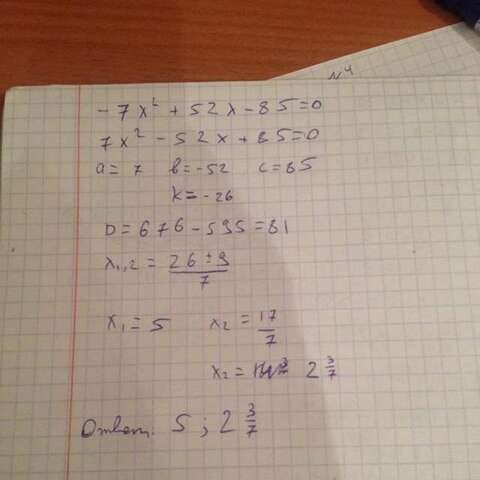 N4
-7x² + 52x - 85 = 0
7x² - 52x + 85 = 0
a = 7 b = -52 c = 85
k = -26
D = 676 - 595 = 81
x₁,₂ = 26 ± 9 / 7
x₁ = 5 x₂ = 17/7
x₂ = 2 3/7
Ответ: 5 ; 2 3/7